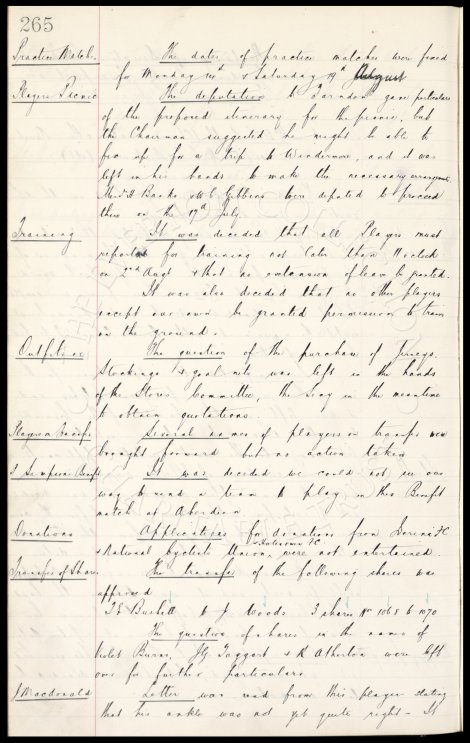 265
Practice Match. The dates of practice matches were fixed
for Monday & Saturday 19th August
Players Picnic The deputation to Farndon gave particulars
of the proposed itinerary for the picnic, but
the Chairman suggested he might be able to
fix up for a trip to Windermere, and it was
left in his hands to make the necessary arrangemts.
Messrs H Banks & W C Gibbins were deputed to proceed
there on the 17th July.
Training It was decided that all Players must
report for training not later than 11 oclock
on 2nd Augt & that no extension of leave be granted.
It was also decided that no other players
except our own be granted permission to train
on the ground.
Outfitting The question of the purchase of Jerseys,
Stockings & goal nets was left in the hands
of the Stores Committee, the Secy in the meantime
to obtain quotations.
Players on transfer Several names of players on transfer were
brought forward but no action taken
J Simpson Benefit It was decided we could not see our
way to send a team to play in this Benefit
match at Aberdeen
Donations Applications for donations from F C
& National Cyclists Union, F C were not entertained.
Transfer of Shares The transfer of the following shares was
approved
to J Woods 3 shares Nos 1068 to 1070
The question of shares in the name of
Violet Burns, J G Taggart & R Atherton were left
over for further particulars
J Macdonald Letter was read from this player stating
that his ankle was not yet quite right – It